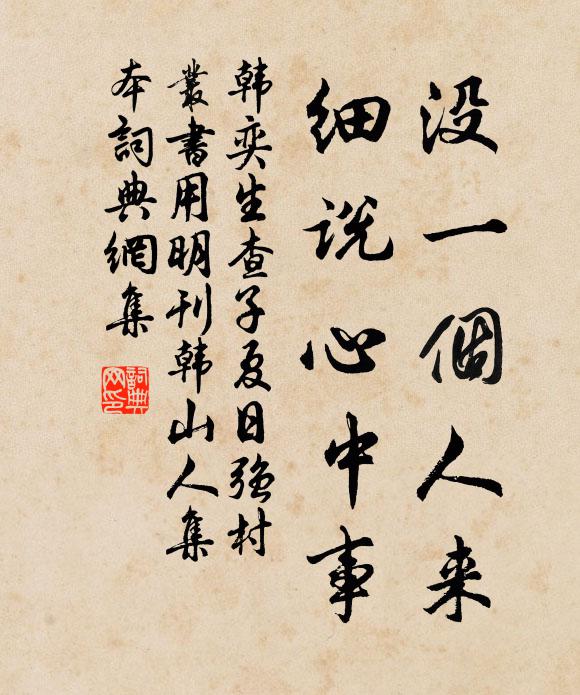 没一個人来
细说心中事
韩奕生查子夏日强村
叢書用明刊韩山人集
本詞典網集
詞典网印